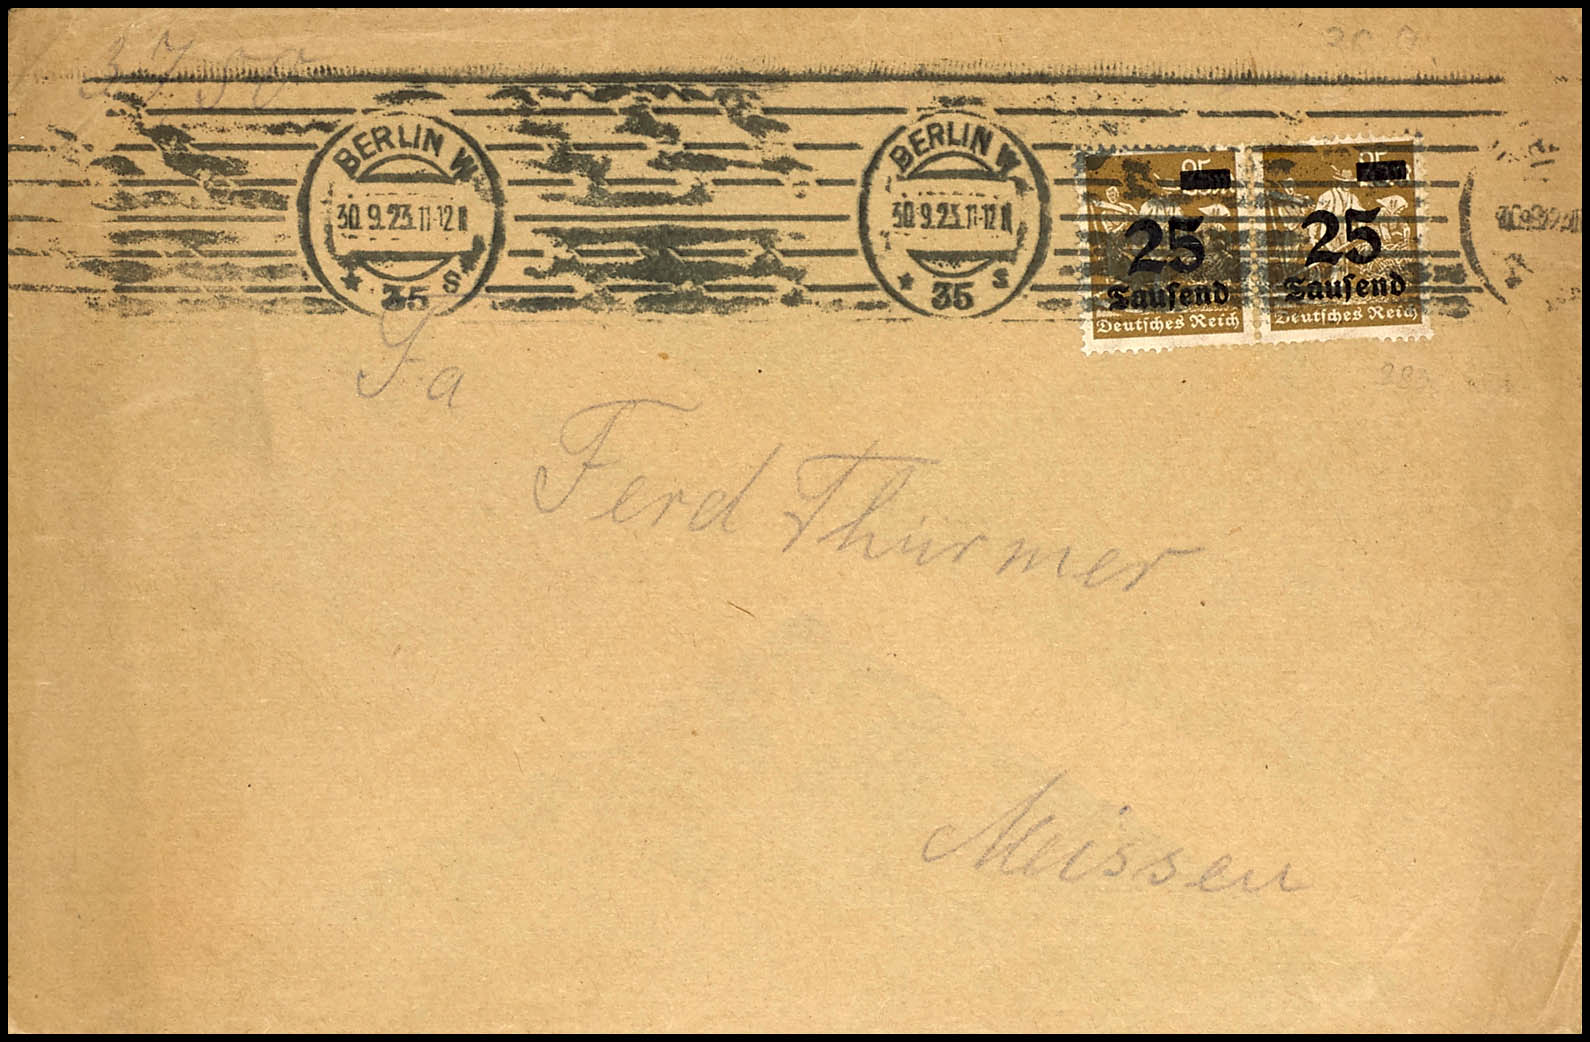 3700
BERLIN W
30.9.23.11-12N
* 35 s
BERLIN W
30.9.23.11-12N
* 35 s
25
25
Tausend
Deutsches Reich
25
25
Tausend
Deutsches Reich
Fa
Ferd Thürmer
Meissen